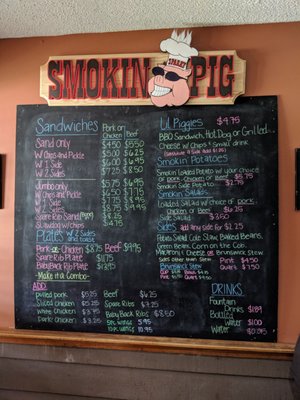 SPARKY
SMOKIN PIG
Sandwiches
Pork or Beef
Chicken
Sand only $4.50 $5.50
W Chips and Pickle $5.00 $6.25
W 1 Side $6.00
W 2 Sides $7.25 $8.50
Jumbo only $5.75 $6.95
W chips and Pickle
1 Side
2 Sides
Spare Rib Sand
Slawdog w/ chips $4.75
Plates w/ 2 Sides and toast
Pork or Chicken $8.75 Beef $9.95
Spare Rib Plate
Baby Back Rib Plate $13.95
Make it a Combo
ADD:
pulled pork $5.25
Sliced Chicken $5.25
White Chicken $5.75
Dark Chicken $5.25
Beef $6.25
Spare Ribs $7.25
Baby Back Ribs $8.50
5pc wings 5.95
10pc wings 10.95
Lil Piggies $4.75
BBQ Sandwich, Hot Dog or Grilled
Cheese w/ Chips & Small drink
(Substitute a Side Add $1.25)
Smokin Potatoes
Smokin Loaded Potato w/ your choice
of pork, Chicken or Beef $6.75
Smokin Side Potato $2.75
Smokin Salads
Loaded Salad w/ choice of pork,
Chicken or Beef $6.25
Side Salad $3.50
Sides add any side for $2.25
Potato Salad, Cole Slaw, Baked Beans,
Green Beans, Corn on the Cob,
Macaroni & Cheese or Brunswick Stew
Sides other than Stew Pint $4.50
Brunswick Stew Quart $7.50
DRINKS
Fountain
Drinks $1.89
Bottled
Water $1.00
Water